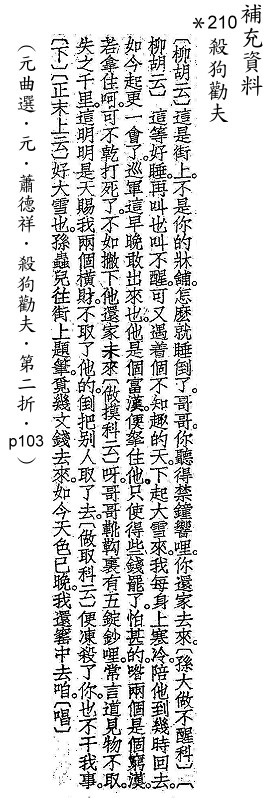 補充資料
*210
殺狗勸夫
〔柳胡云〕這是街上。不是你的牀舖。怎麼就睡倒了。哥哥。你聽得禁鐘響哩。你還家去來。〔孫大做不醒科〕〔
柳胡云〕這等好睡。再叫也叫不醒。可又遇着個不知趣的天。下起大雪來。我每身上寒冷。陪他到幾時回去。
如今起更一會了。巡軍這早晚敢出來也。他是個富漢。便拏住他。只使得些錢罷了。怕甚的。喒兩個是個窮漢。
若拿住呵。可不乾打死了。不如撇下他還家未來。〔做摸科云〕呀。哥哥靴靿裏有五錠鈔哩。常言道見物不取。
失之千里。這明明是天賜我兩個橫財。不取了他的。倒把別人取了去。〔做取科云〕便凍殺了你。也不干我事。
〔下〕〔正末上云〕好大雪也。孫蟲兒往街上題筆覓幾文錢去來。如今天色已晚。我還窰中去咱。〔唱〕
（元曲選．元．蕭德祥．殺狗勸夫．第二折．p103）